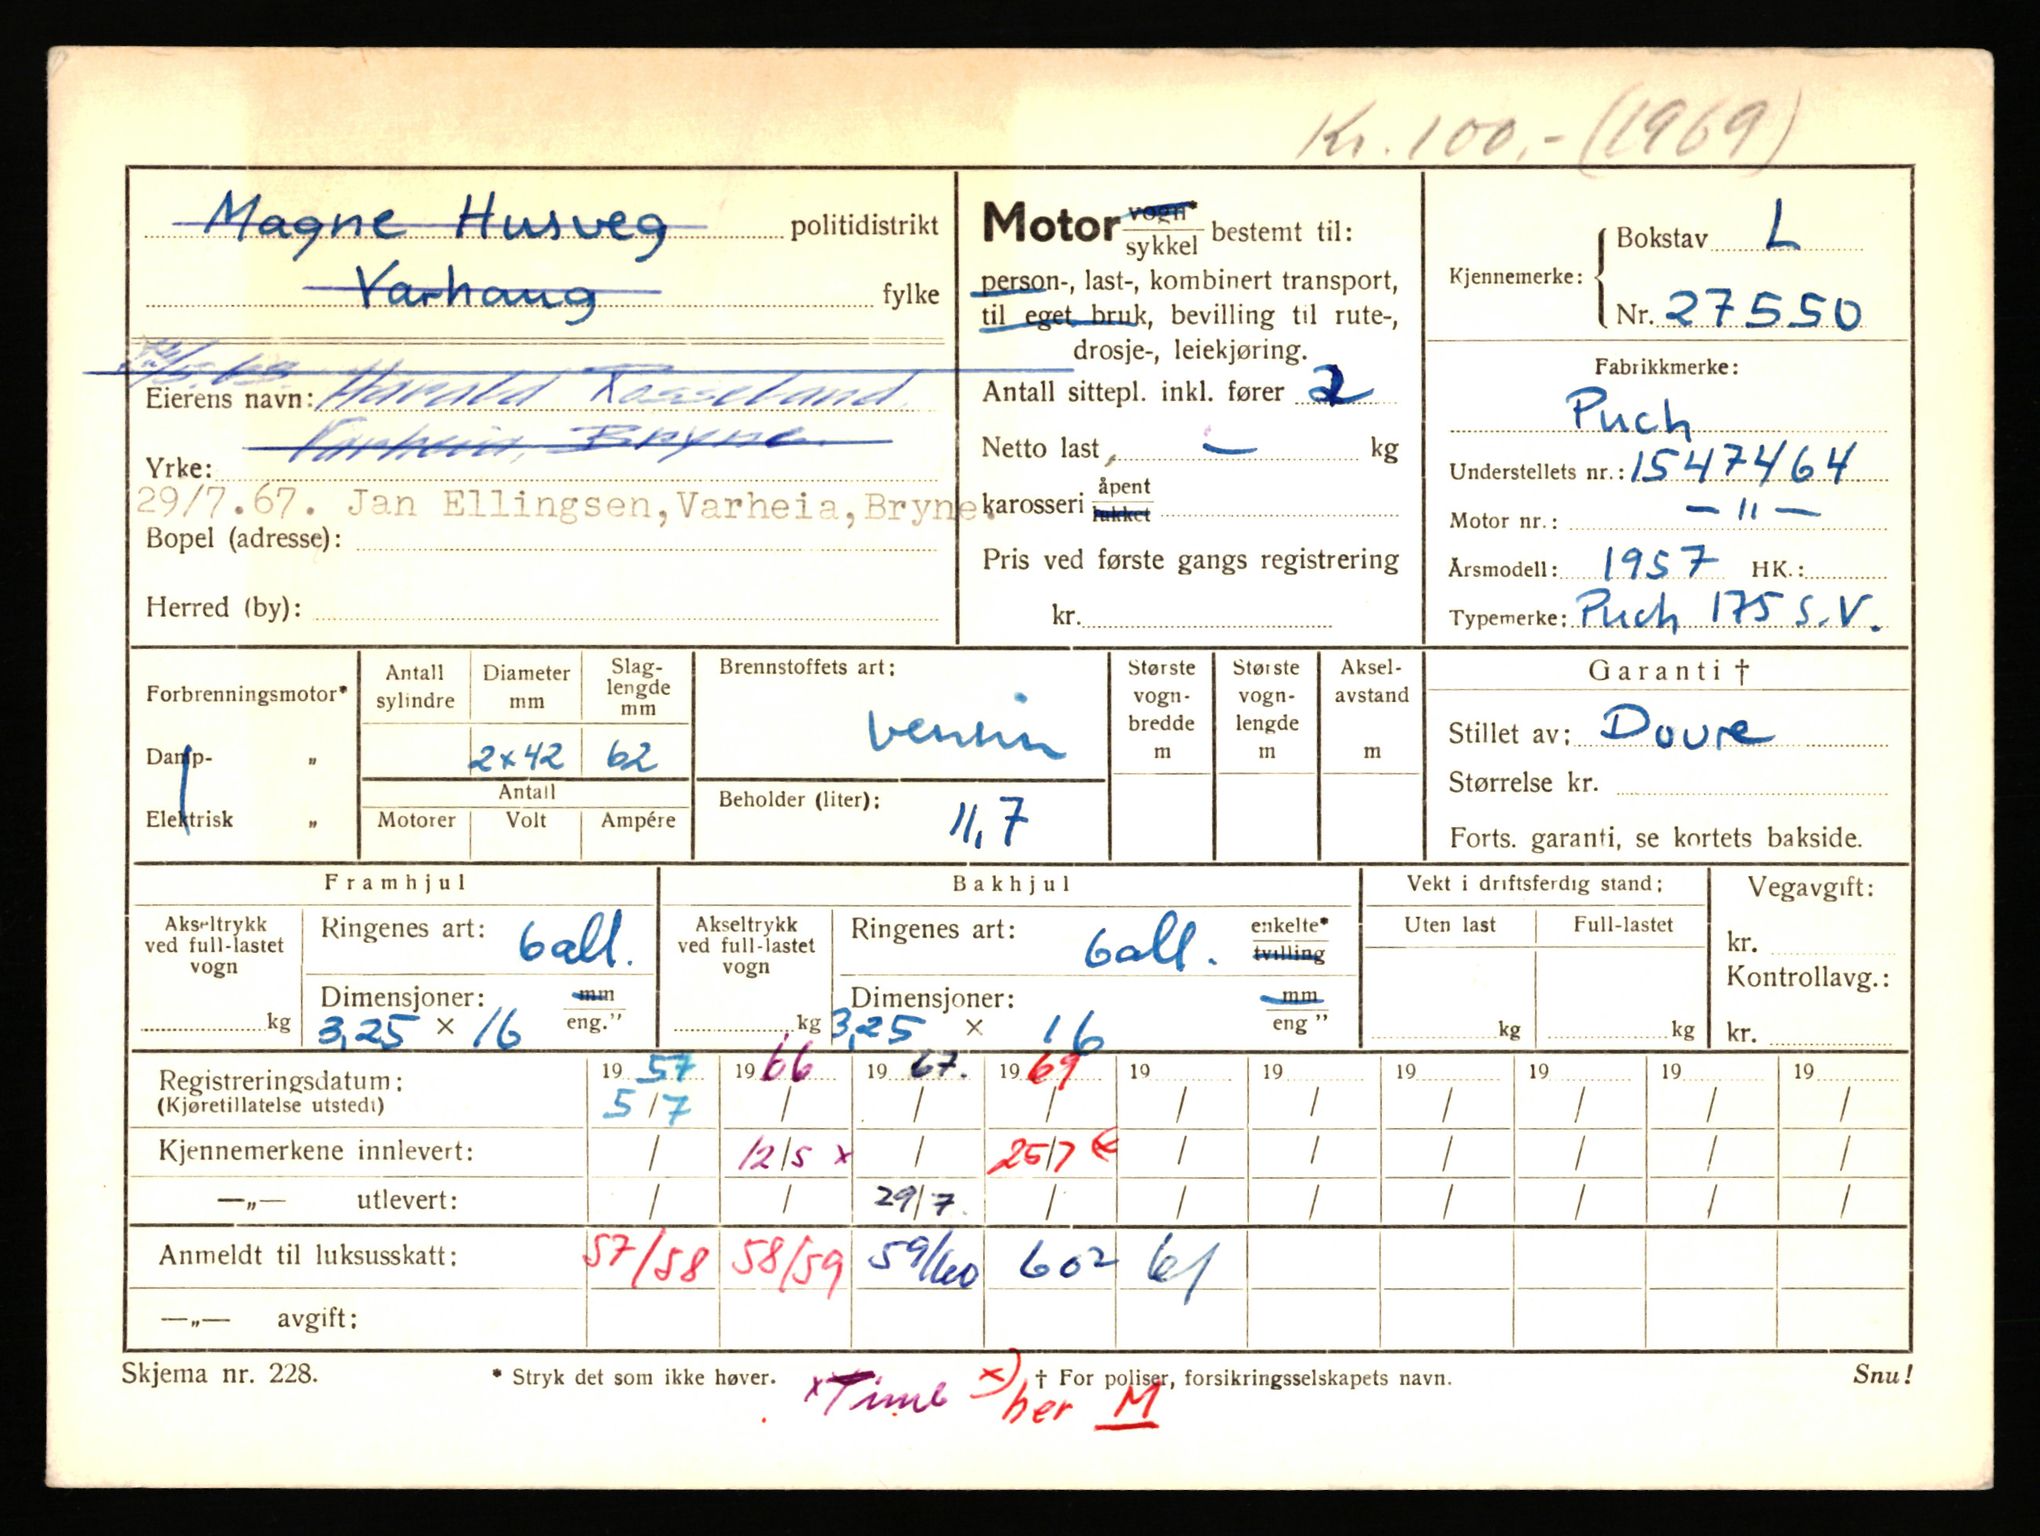 Kr. 100,- (1969)
Magne Husveg politidistrikt
Varhaug fylke
Eierens navn: Harald Rosseland
Varheia, Bryne
Yrke:
29/7.67. Jan Ellingsen, Varheia, Bryne.
Bopel (adresse):
Herred (by):
Motor vogn* sykkel bestemt til:
person-, last-, kombinert transport,
til eget bruk, bevilling til rute-,
drosje-, leiekjøring.
Antall sittepl. inkl. fører 2
Netto last, — kg
karosseri åpent lukket
Pris ved første gangs registrering
kr.
Kjennemerke: Bokstav L
Nr. 27550
Fabrikkmerke:
Puch
Understellets nr.: 1547464
Motor nr.: — " —
Årsmodell: 1957 HK.:
Typemerke: Puch 175 S.V.
Forbrenningsmotor*
Damp- „
Elektrisk „
Antall sylindre
Diameter mm
Slag-lengde mm
2x42 62
Antall
Motorer Volt Ampére
Brennstoffets art:
bensin
Beholder (liter):
11,7
Største vogn-bredde m
Største vogn-lengde m
Aksel-avstand m
Garanti †
Stillet av: Dovre
Størrelse kr.
Forts. garanti, se kortets bakside.
Framhjul
Akseltrykk ved full-lastet vogn
kg
Ringenes art: ball.
Dimensjoner: mm
3,25 × 16 eng."
Bakhjul
Akseltrykk ved full-lastet vogn
kg
Ringenes art: ball. enkelte* tvilling
Dimensjoner: mm
3,25 × 16 eng "
Vekt i driftsferdig stand:
Uten last Full-lastet
kg kg
Vegavgift:
kr.
Kontrollavg.:
kr.
Registreringsdatum: 19 57 19 66 19 67. 19 69 19 19 19 19 19 19
(Kjøretillatelse utstedt) 5/7 / / / / / / / / /
Kjennemerkene innlevert: / 12/5 x / 25/7 / / / / / /
—„— utlevert: / / 29/7. / / / / / / /
Anmeldt til luksusskatt: 57/58 58/59 59/60 602 61
—„— avgift:
Skjema nr. 228. * Stryk det som ikke høver. † For poliser, forsikringsselskapets navn. Snu!
x Time x) her M